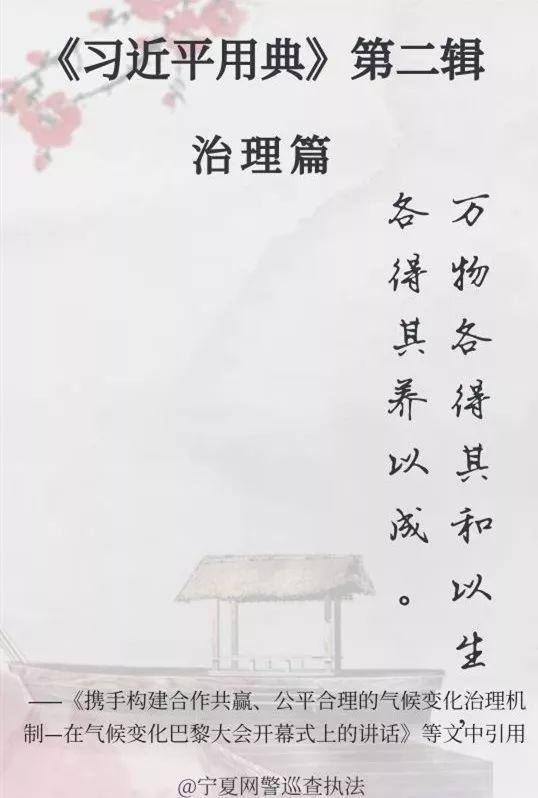 《习近平用典》第二辑
治理篇
万物各得其和以生，
各得其养以成。
——《携手构建合作共赢、公平合理的气候变化治理机
制—在气候变化巴黎大会开幕式上的讲话》等文中引用
@宁夏网警巡查执法